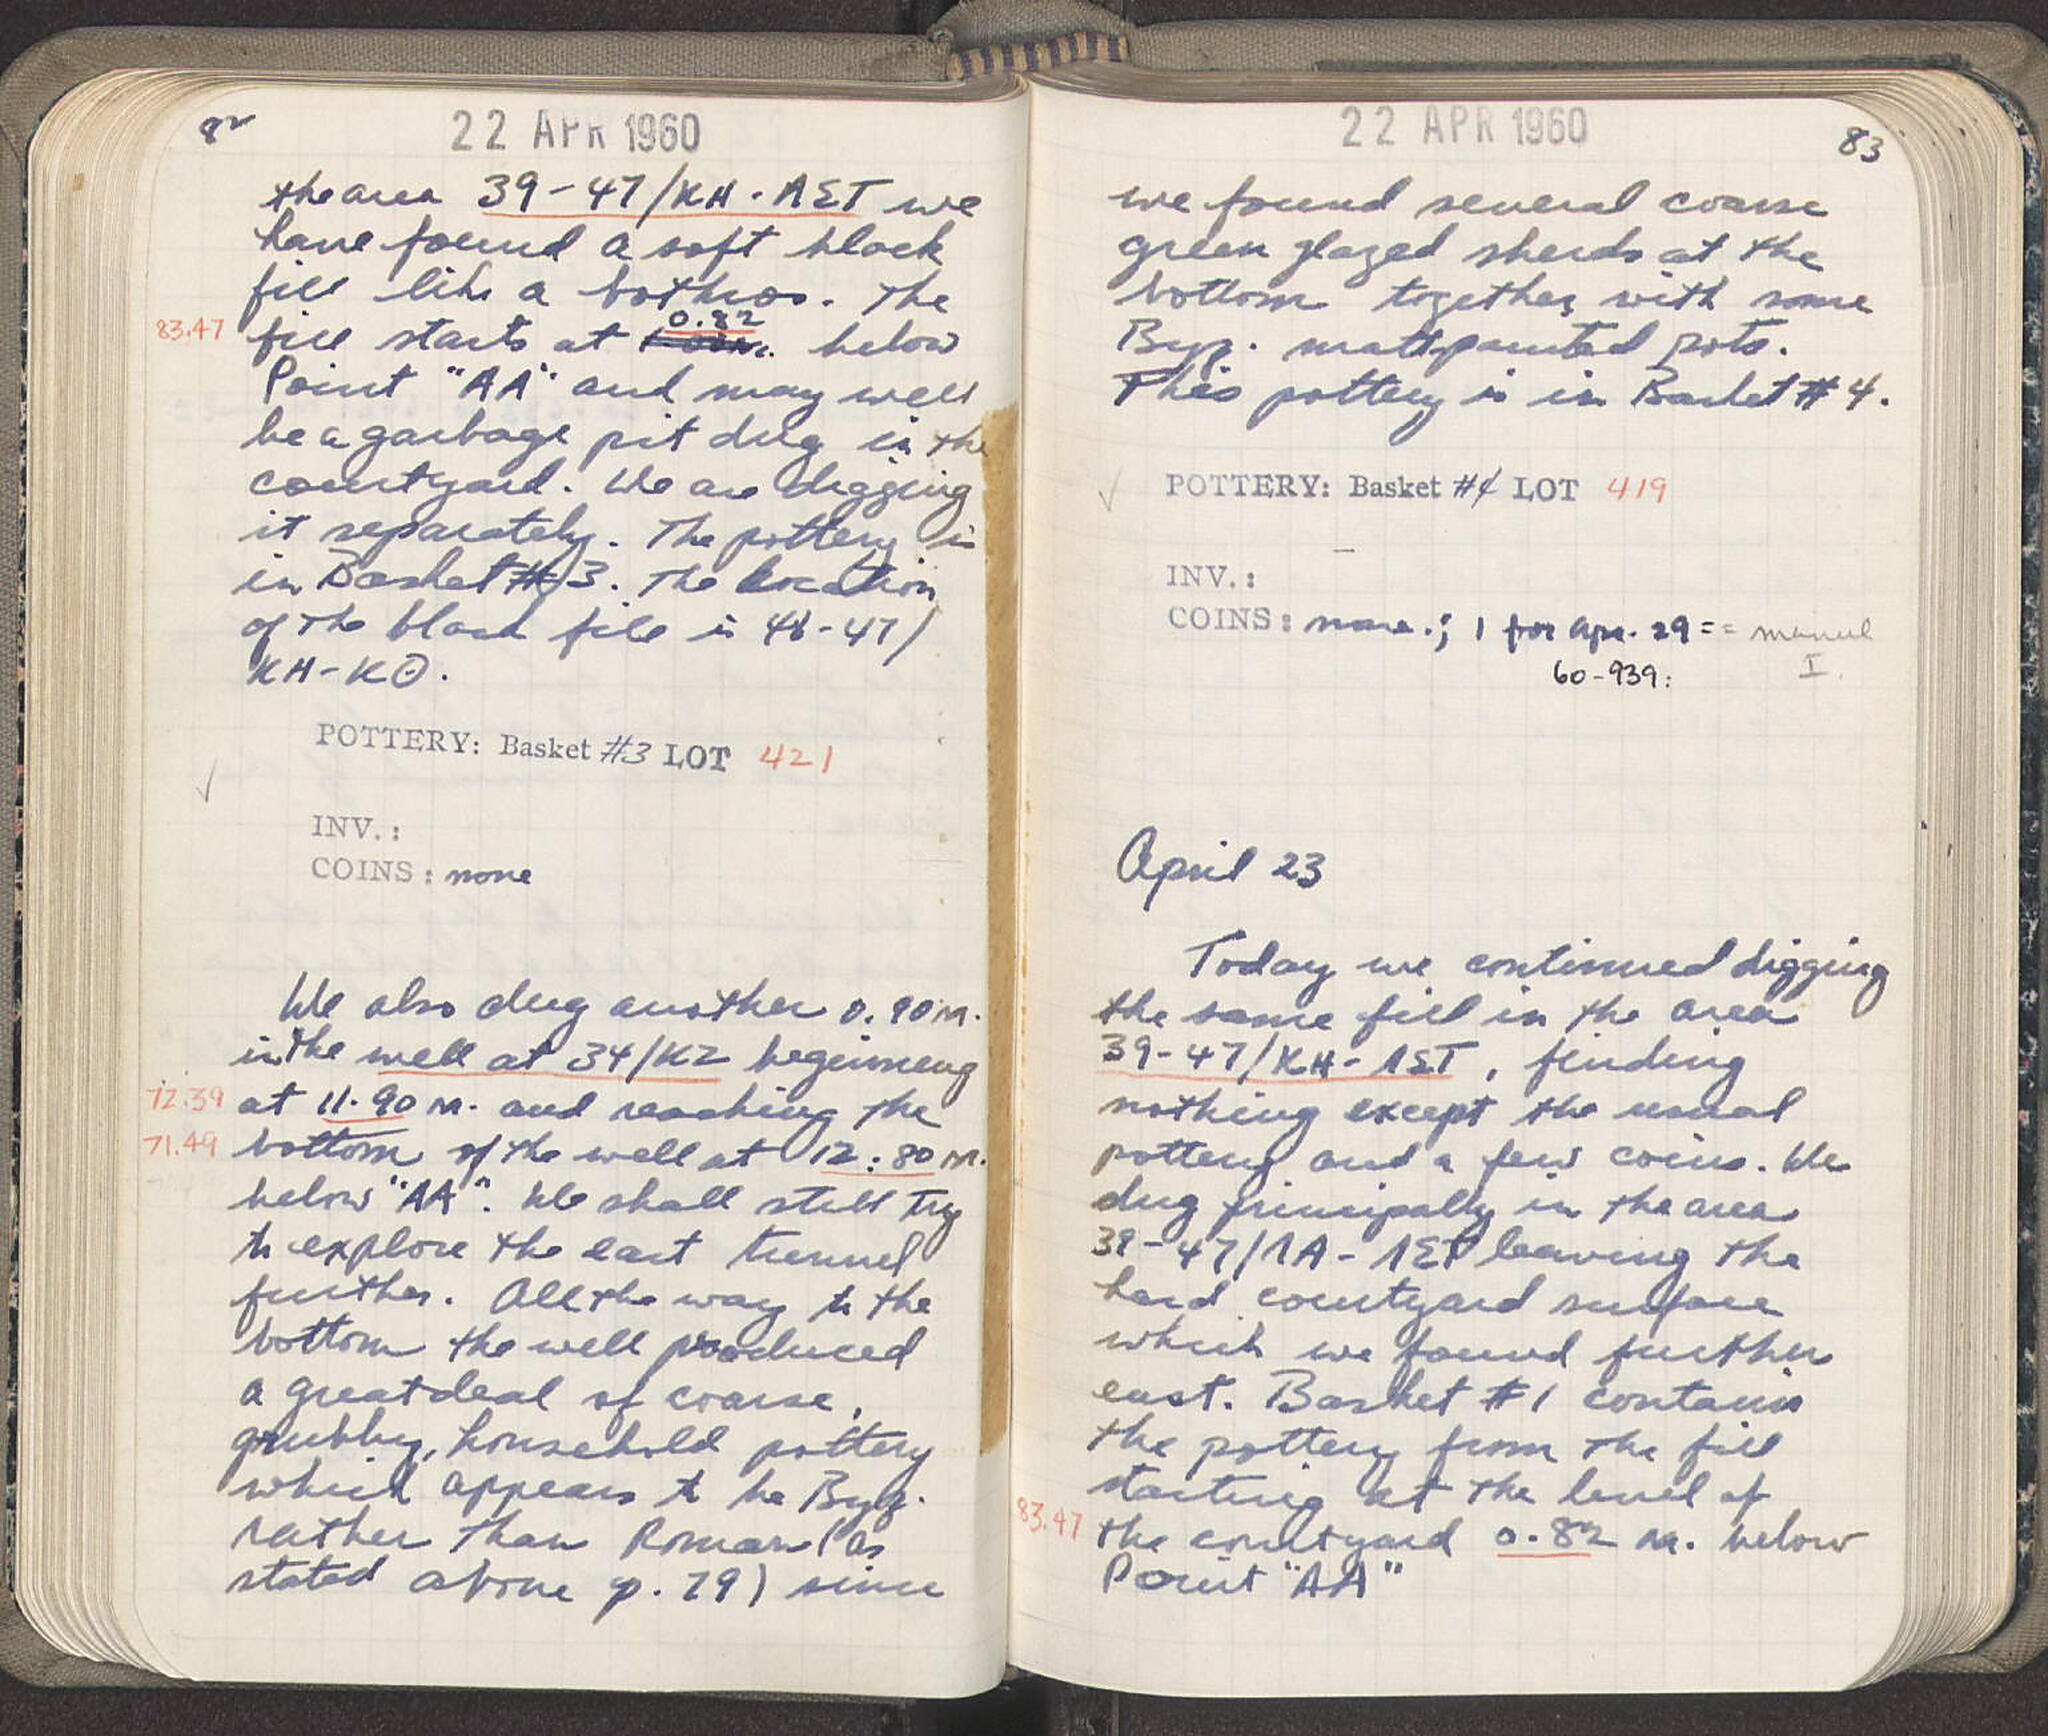 82
22 APR 1960
the area 39-47/KH-ΛΣΤ we
have found a soft black
fill like a bothros. The
0.82
83.47 fill starts at below
Point "AA" and may well
be a garbage pit dug in the
courtyard. We are digging
it separately. The pottery is
in Basket #3. The location
of the black fill is 46-47/
KH-KΘ.
POTTERY: Basket #3 LOT 421
INV.:
COINS: none
We also dug another 0.90 m.
in the well at 34/KZ beginning
72.39 at 11.90 m. and reaching the
71.49 bottom of the well at 12.80 m.
below "AA". We shall still try
to explore the east tunnel
further. All the way to the
bottom the well produced
a great deal of coarse,
grubby, household pottery
which appears to be Byz.
rather than Roman (as
stated above p. 79) since
22 APR 1960
83
we found several coarse
green glazed sherds at the
bottom together with some
Byz. mattpainted pots.
This pottery is in Basket #4.
POTTERY: Basket #4 LOT 419
INV.: –
COINS: none.; 1 for Apr. 29 == manuel
60-939: I.
April 23
Today we continued digging
the same fill in the area
39-47/KH-ΛΣΤ, finding
nothing except the usual
pottery and a few coins. We
dug principally in the area
39-47/ΛA-ΛΣΤ leaving the
hard courtyard surface
which we found further
east. Basket #1 contains
the pottery from the fill
starting at the level of
83.47 the courtyard 0.82 m. below
Point "AA"